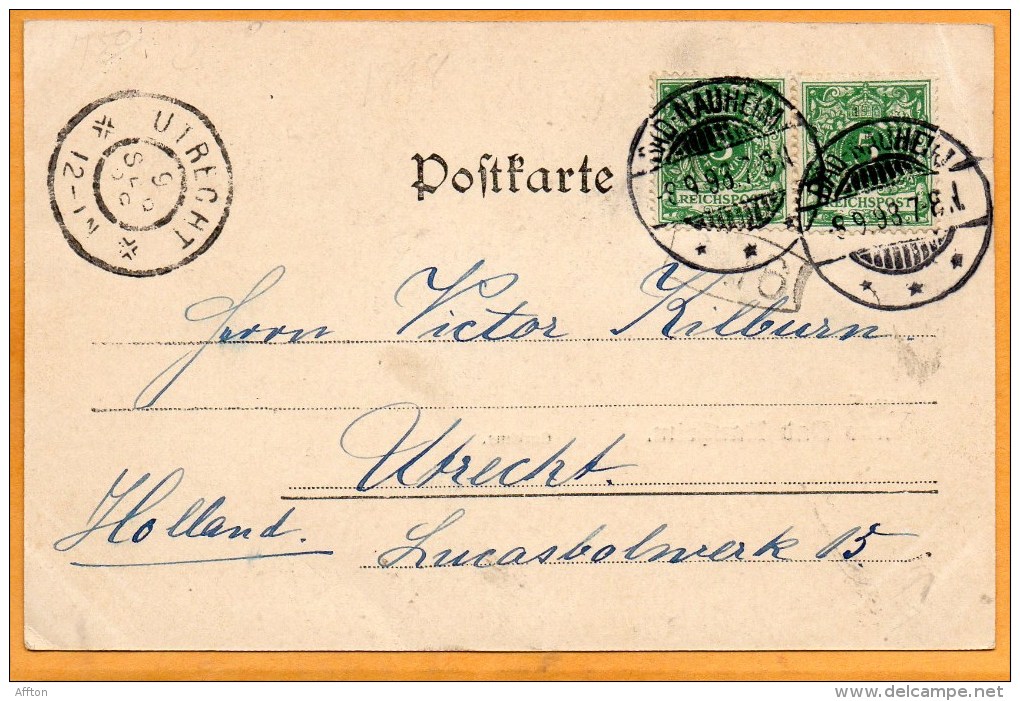 UTRECHT
9 SEP
12-1N
Postkarte
BAD-NAUHEIM
8.9.98.7-8.N
REICHSPOST
BAD-NAUHEIM
8.9.98.7-8.N
REICHSPOST
Herrn Victor Kilburn
Utrecht.
Holland. Lucasbolwerk 15
Affton
www.delcampe.net